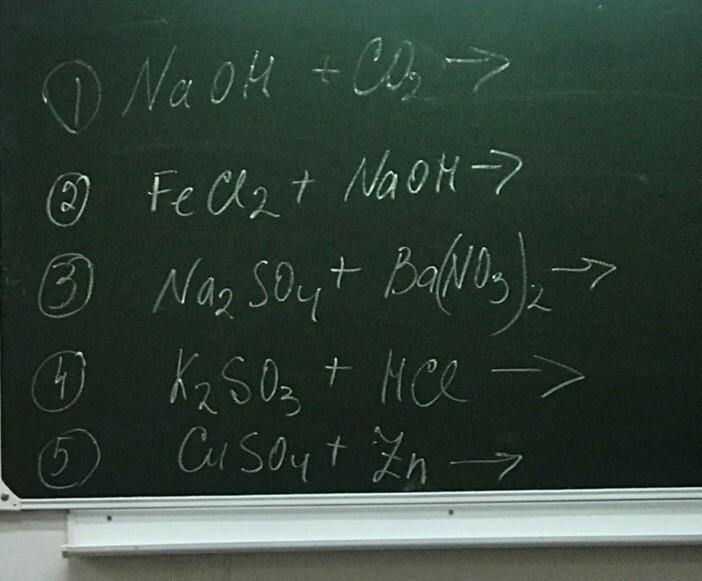 ① NaOH + CO₂ →
② FeCl₂ + NaOH →
③ Na₂SO₄ + Ba(NO₃)₂ →
④ K₂SO₃ + HCl →
⑤ CuSO₄ + Zn →